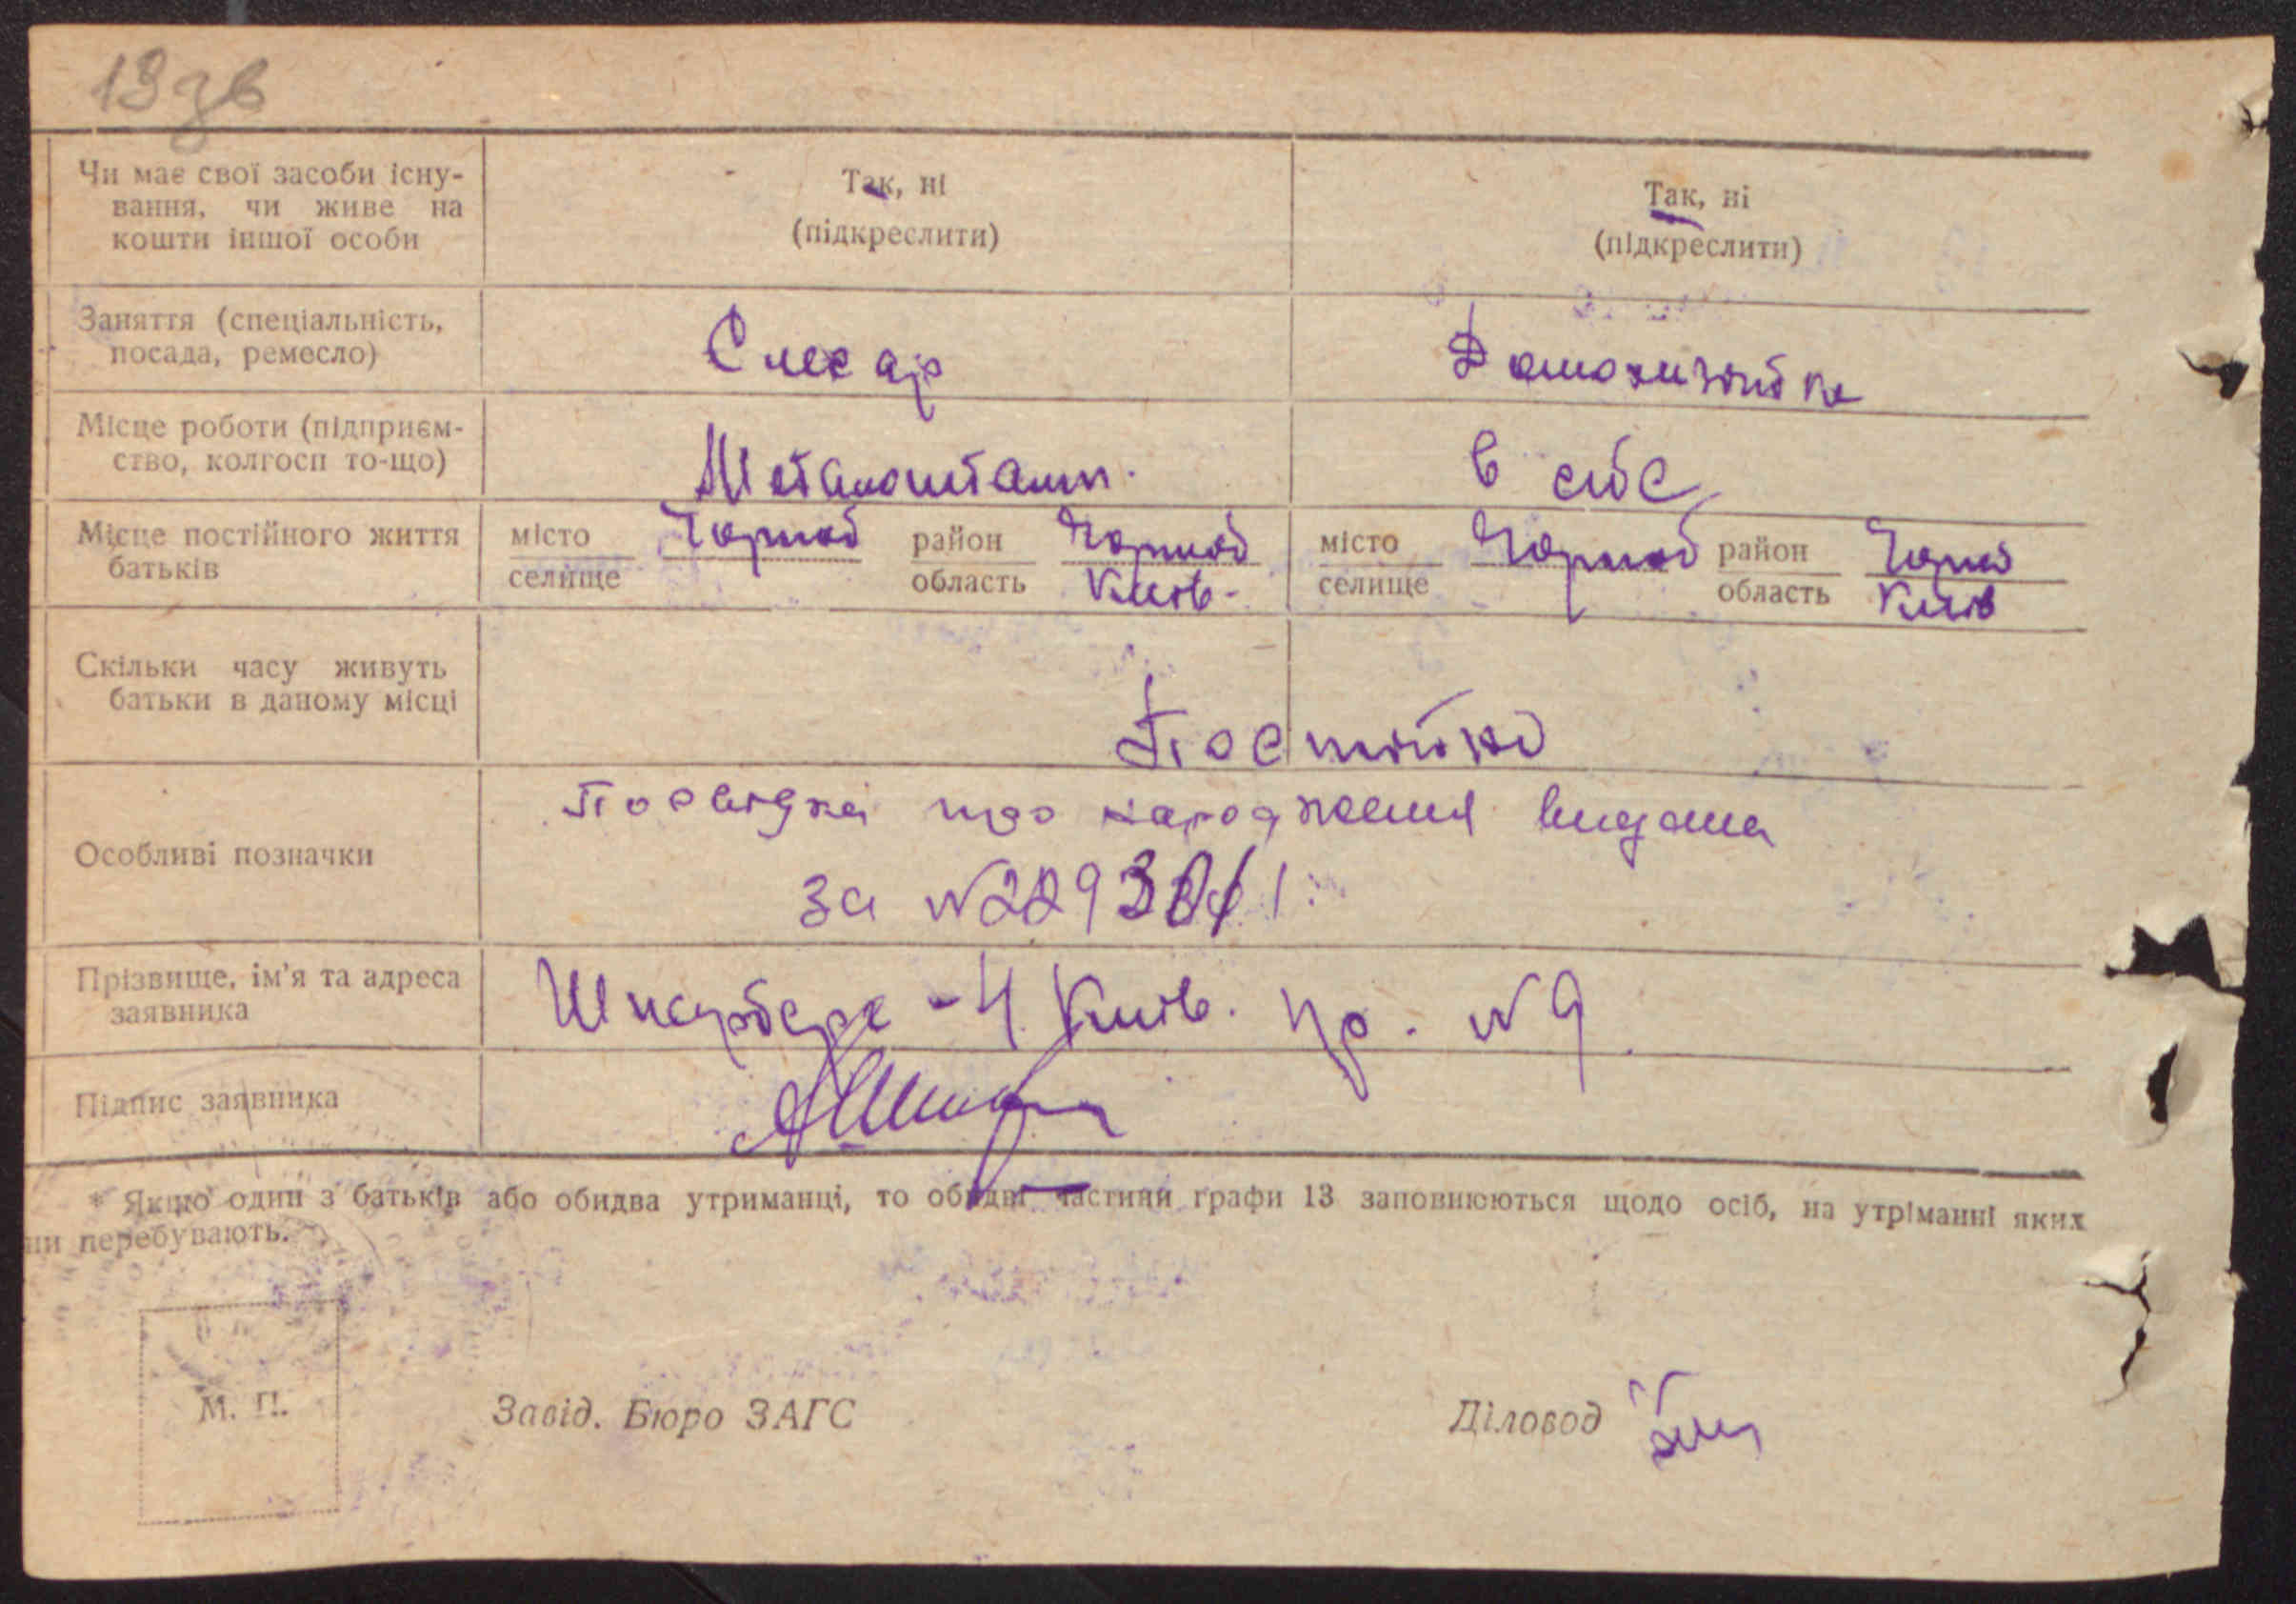 13зв
Чи має свої засоби існу-
вання, чи живе на
кошти іншої особи
Так, ні
(підкреслити)
Так, ні
(підкреслити)
Заняття (спеціальність,
посада, ремесло)
Слесар
Домохазяйка
Місце роботи (підприєм-
ство, колгосп то-що)
Металоштамп.
В себе
Місце постійного життя
батьків
місто
селище
Чорноб
район
область
Чорноб
Київ-
місто
селище
Чорноб
район
область
Чорноб
Київ
Скільки часу живуть
батьки в даному місці
Постійно
Особливі позначки
Посвідка про народження видана
за №
Прізвище, ім'я та адреса
заявника
Київ. пр. №9
Підпис заявника
* Якщо один з батьків або обидва утриманці, то обидві частини графи 13 заповнюються щодо осіб, на утріманні яких
ни перебувають.
М. П.
Завід. Бюро ЗАГС
Діловод